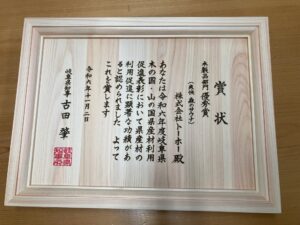 賞状
木製品部門 優秀賞
株式会社トーホー殿
あなたは令和六年度岐阜県
木の国・山の国県産材利用
促進表彰において県産材の
利用促進に顕著な功績があ
ると認められました よって
これを賞します
令和六年十一月二日
岐阜県知事 古田 肇